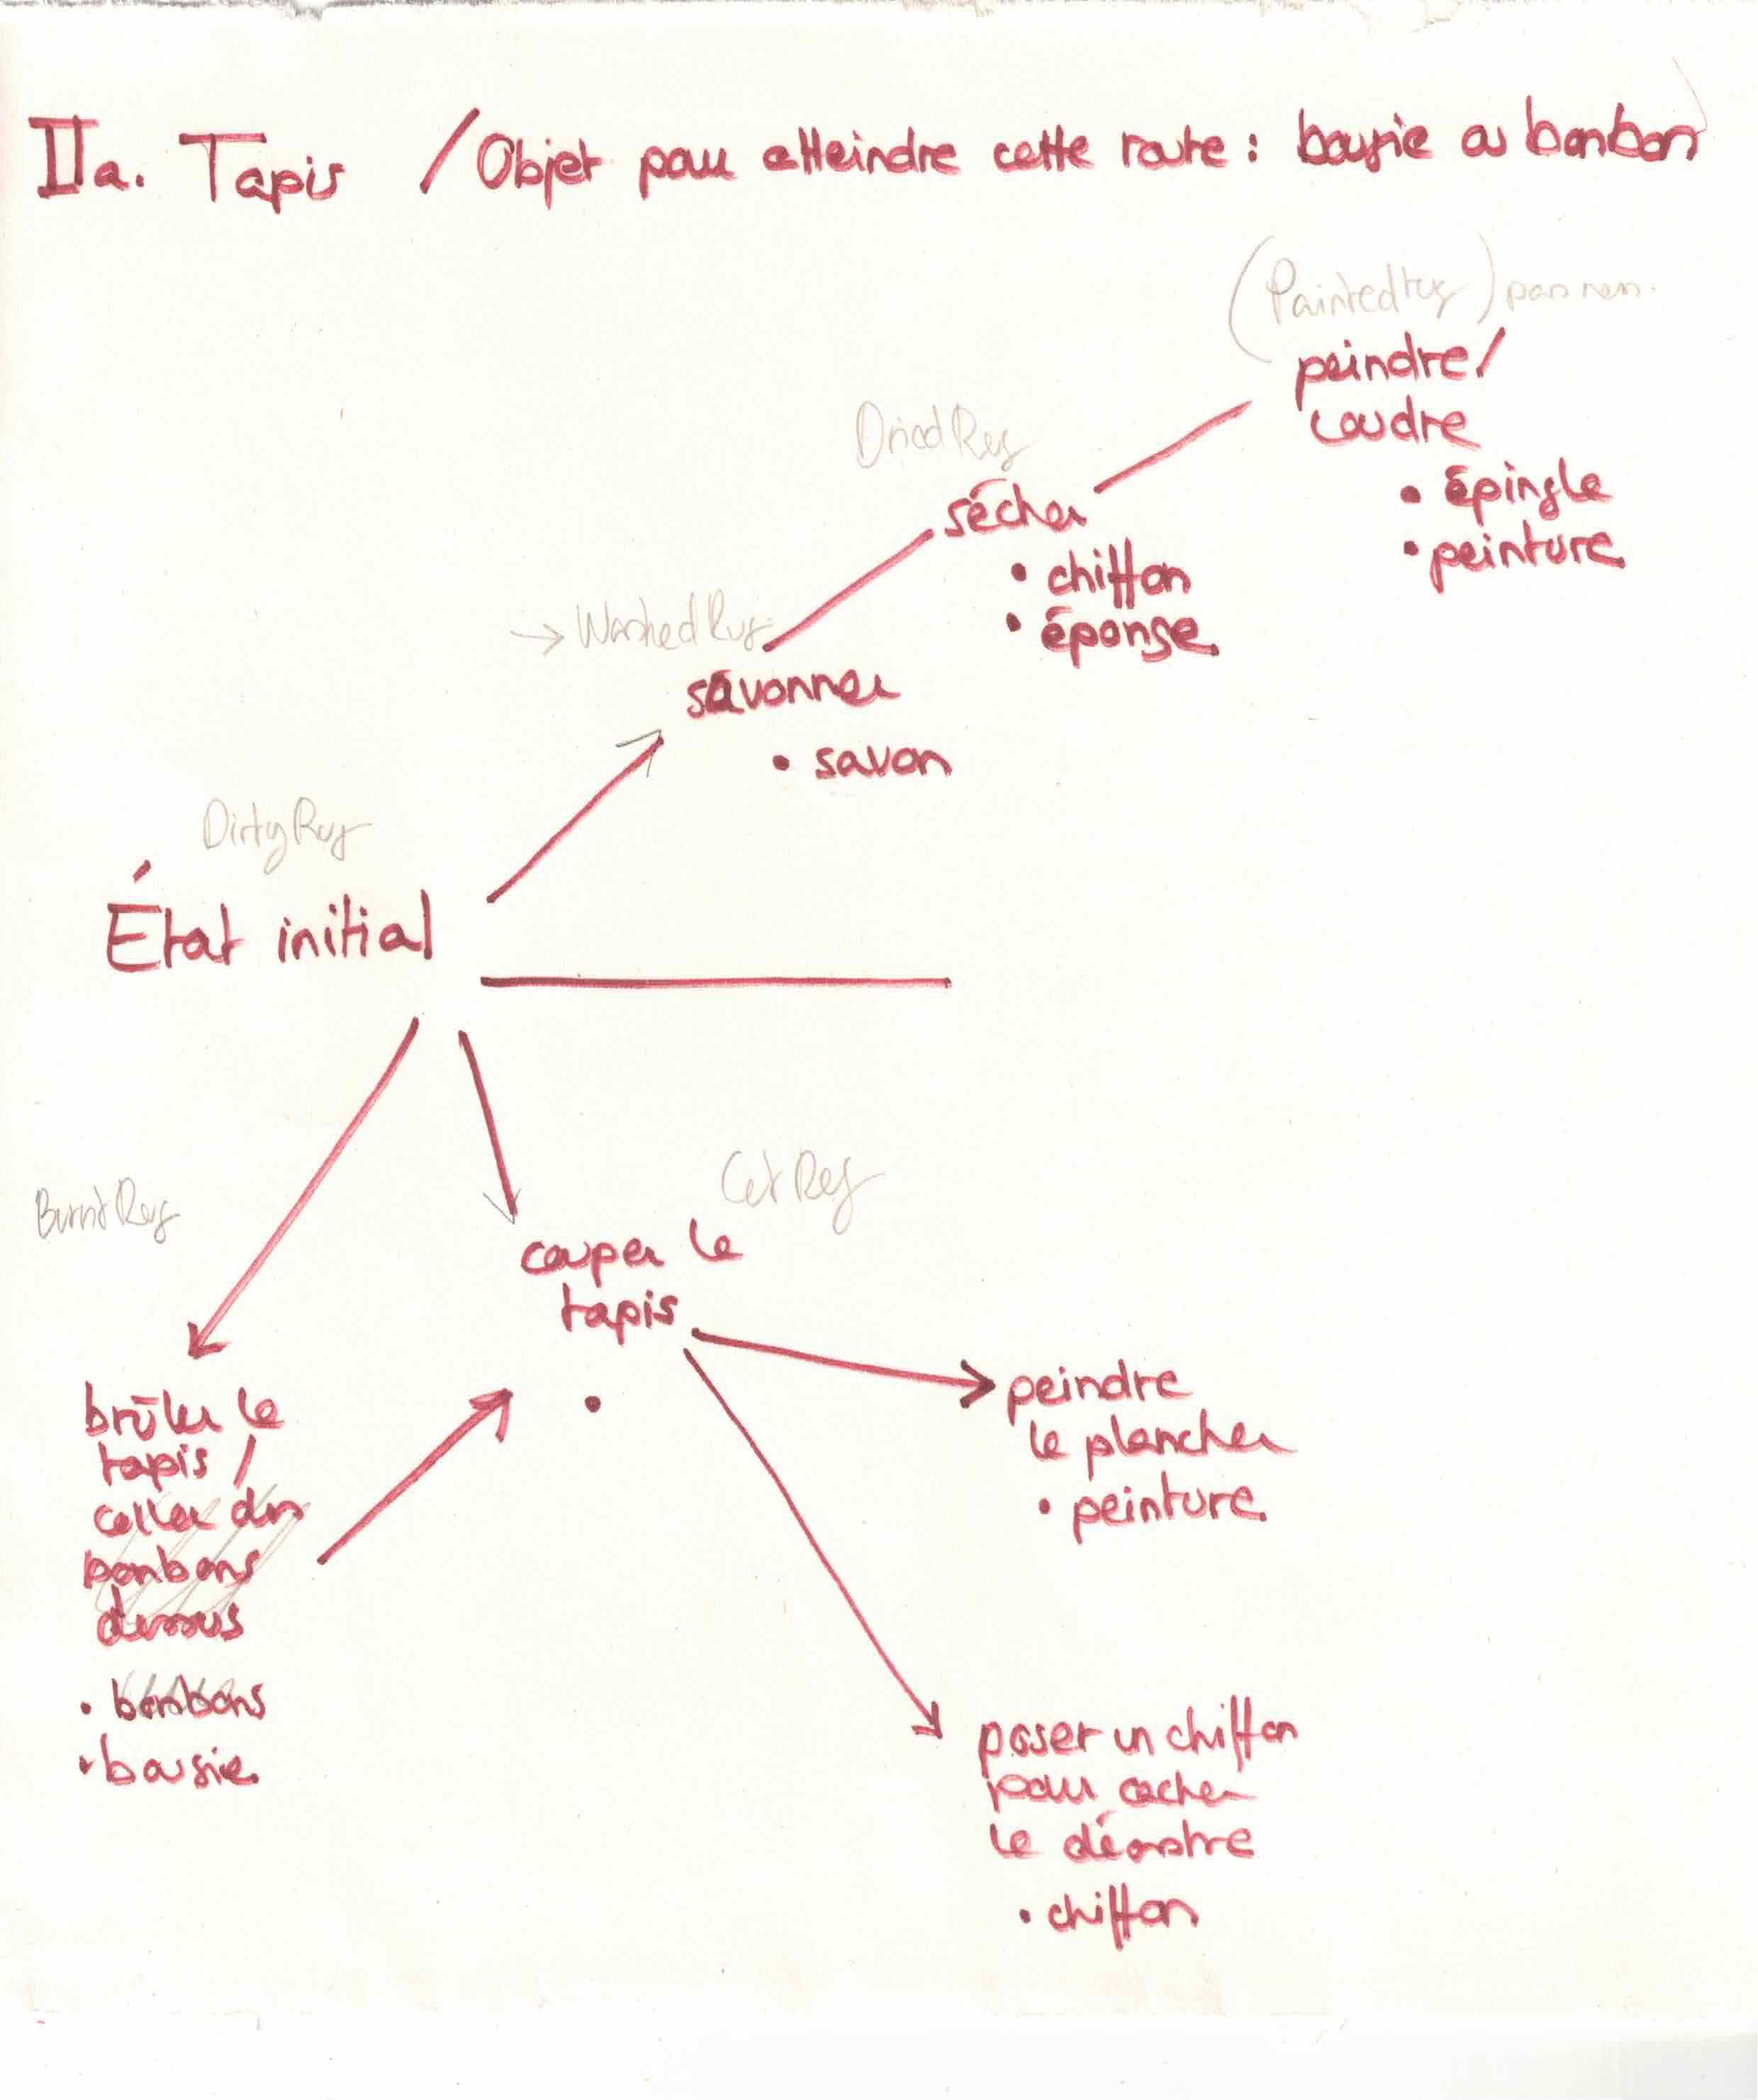 IIa. Tapis / Objet pour atteindre cette route : bougie ou bonbon
(PaintedRug)
peindre/
coudre
• épingle
• peinture
DriedRug
sécher
• chiffon
• éponge
→ WashedRug
savonner
• savon
DirtyRug
État initial
BurntRug
CutRug
couper le
tapis
•
brûler le
tapis /
coller des
bonbons
dessus
• bonbons
• bougie
peindre
le plancher
• peinture
poser un chiffon
pour cacher
le désastre
• chiffon